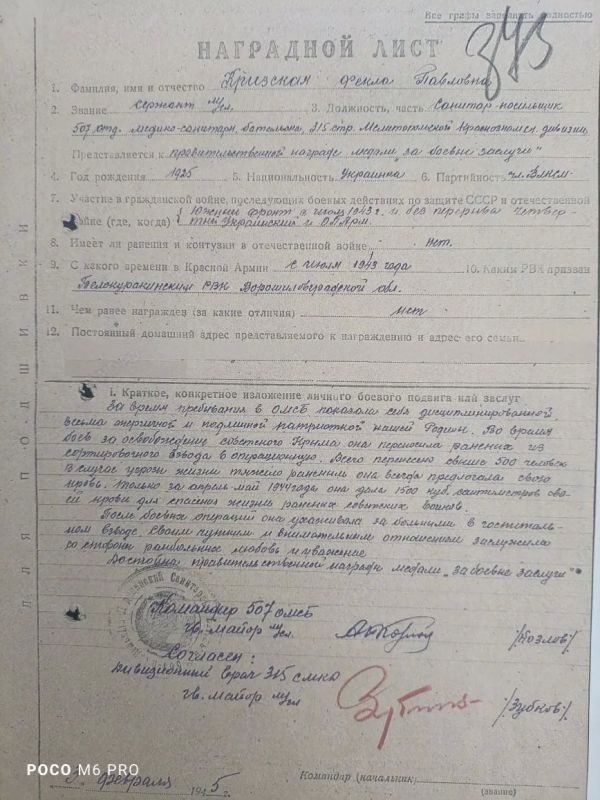 Все графы заполнять полностью
393
НАГРАДНОЙ ЛИСТ
1. Фамилия, имя и отчество Кризская Фекла Павловна
2. Звание сержант м/сл. 3. Должность, часть Санитар-носильщик
507 отд. медико-санитарн. батальона, 315 стр. Мелитопольской Краснознамен. дивизии,
Представляется к правительственной награде медали "за боевые заслуги"
4. Год рождения 1925 5. Национальность Украинка 6. Партийность чл. Влксм
7. Участие в гражданской войне, последующих боевых действиях по защите СССР и отечественной
войне (где, когда) Южный фронт с июля 1943 г. и без перерыва четвер-
тый Украинский и О.П.Арм.
8. Имеет ли ранения и контузии в отечественной войне нет.
9. С какого времени в Красной Армии с июля 1943 года 10. Каким РВК призван
Белокуракинским РВК Ворошиловградской обл.
11. Чем ранее награжден (за какие отличия) нет
12. Постоянный домашний адрес представляемого к награждению и адрес его семьи
ДЛЯ ПОДШИВКИ
I. Краткое, конкретное изложение личного боевого подвига или заслуг
За время пребывания в ОМСБ показала себя дисциплинированной
весьма энергичной и подлинной патриоткой нашей Родины. Во время
боев за освобождение советского Крыма она переносила раненых из
сортировочного взвода в операционную. Всего перенесено свыше 500 человек
В случае угрозы жизни тяжело раненым она всегда предлогала свою
кровь. Только за апрель-май 1944 года она дала 1500 куб. сантиметров сво-
ей крови для спасения жизни раненых советских воинов.
После боевых операций она ухаживала за больными в госпиталь-
ном взводе. Своим чутким и внимательным отношением заслужила
со стороны ранбольных любовь и уважение
Достойна правительственной награды медали "за боевые заслуги"
Командир 507 ОМСБ
гв. майор м/сл. /Козлов/
Согласен:
Дивизионный врач 315 смкд
гв. майор м/сл /Зубков/
февраля 1945 г.
Командир (начальник)
(звание)
POCO M6 PRO